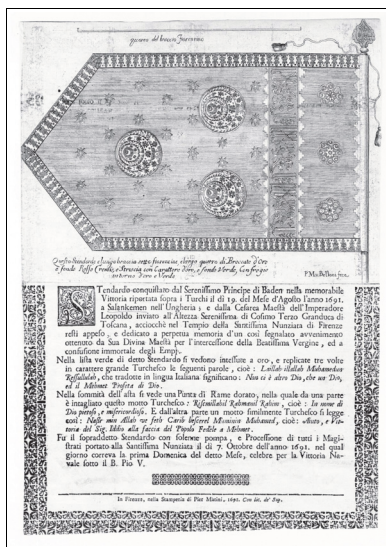 quarto del braccio fiorentino
Questo Stendardo è lungo braccia sette fiorentine, e largo quattro di Broccato d'Oro
à fondo Rosso Cremisi, e Striscia con Caratteri d'Oro, à fondo Verde, con fregio
intorno d'Oro e Verde
Stendardo conquistato dal Serenissimo Principe di Baden nella memorabile
Vittoria riportata sopra i Turchi il dì 19. del Mese d'Agosto l'anno 1691.
a Salankemen nell'Ungheria; e dalla Cesarea Maestà dell'Imperadore
Leopoldo inviato all'Altezza Serenissima di Cosimo Terzo Granduca di
Toscana, acciocchè nel Tempio della Santissima Nunziata di Firenze
resti appeso, e dedicato a perpetua memoria d'un così segnalato avvenimento
ottenuto da Sua Divina Maestà per l'intercessione della Beatissima Vergine, ed a
confusione immortale degli Empj.
Nella lista verde di detto Stendardo si vedono intessute a oro, e replicate tre volte
in carattere grande Turchesco le seguenti parole, cioè: Lailah illallah Muhamedun
Ressullulah, che tradotte in lingua Italiana significano: Non ci è altro Dio, che un Dio,
ed il Mehmet Profeta di Dio.
Nella sommità dell'asta si vede una Punta di Rame dorato, nella quale da una parte
è intagliato questo motto Turchesco: Bismillahil Rahmanil Rahim, cioè: In nome di
Dio pietoso, e misericordioso. E dall'altra parte un motto similmente Turchesco si legge
così: Nasr min Allah ve feth Carib besseril Mominin Muhamed, cioè: Aiuto, e Vit-
toria del Sig. Iddio alla faccia del Popolo Fedele a Mehmet.
Fu il sopraddetto Stendardo con solenne pompa, e Processione di tutti i Magi-
strati portato alla Santissima Nunziata il dì 7. Ottobre dell'anno 1691. nel qual
giorno correva la prima Domenica del detto Mese, celebre per la Vittoria Na-
vale sotto il B. Pio V.
In Firenze, nella Stamperia di Pier Matini, 1691. Con lic. de' Sup.